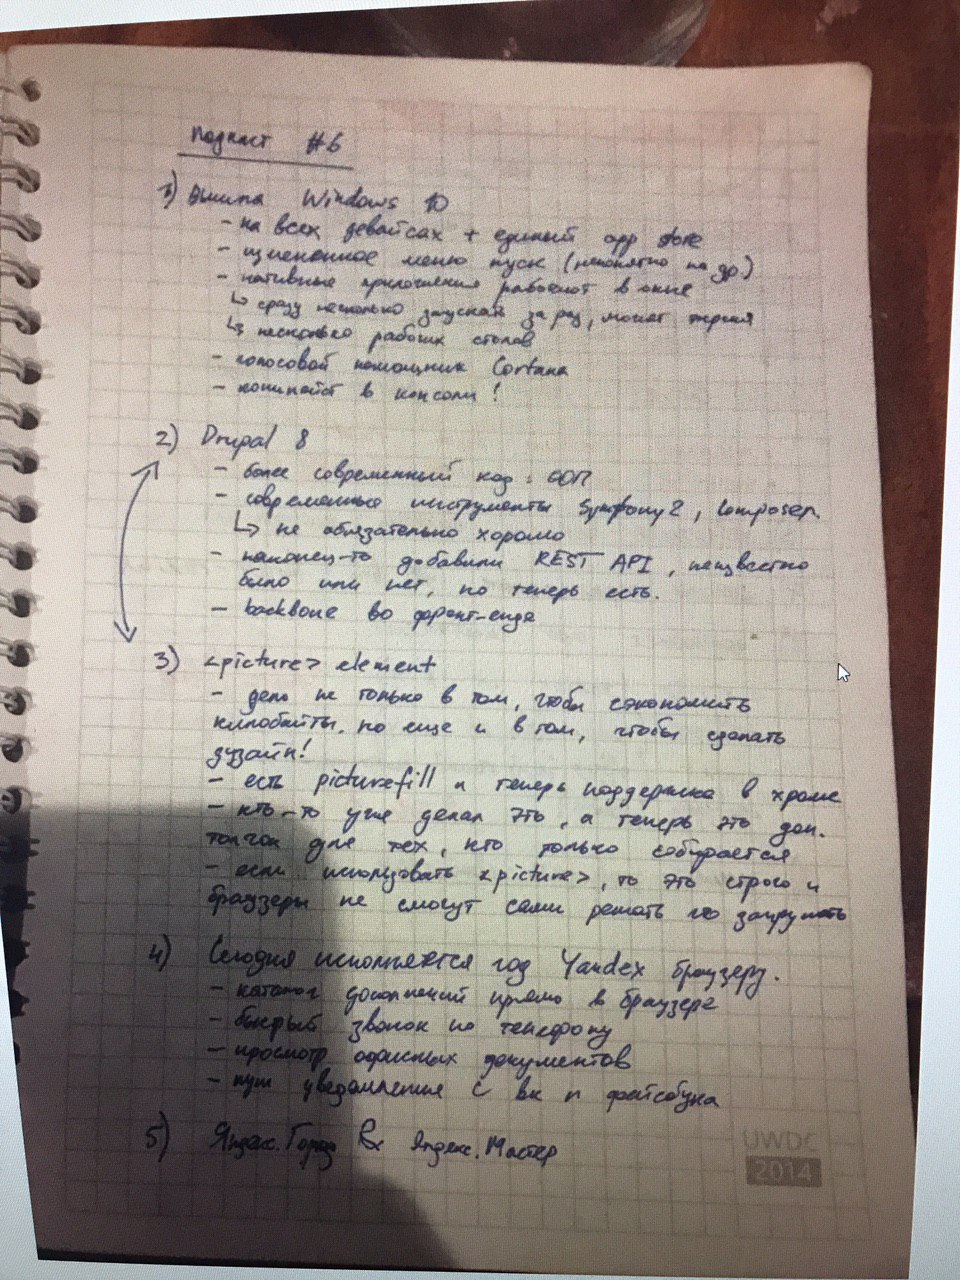 Подкаст #6
1) вышла Windows 10
- на всех девайсах + единый app store
- измененное меню пуск (непонятно на др.)
- нативные приложения работают в окне
↳ сразу несколько запускать за раз, может
↳ несколько рабочих столов
- голосовой помощник Cortana
- копипейст в консоли!
2) Drupal 8
- более современный код: ООП
- современные инструменты Symfony2, Composer.
↳ не обязательно хорошо
- наконец-то добавили REST API, неизвестно
было или нет, но теперь есть.
- backbone во фронт-енде
3) <picture> element
- дело не только в том, чтобы сэкономить
килобайты, но еще и в том, чтобы сделать
дизайн!
- есть picturefill и теперь поддержка в хроме
- кто-то уже делал это, а теперь это доп.
толчок для тех, кто только собирается
- если использовать <picture>, то это строго и
браузеры не смогут сами решать что загружать
4) Сегодня исполняется год Yandex браузеру.
- каталог дополнений прямо в браузере
- быстрый звонок по телефону
- просмотр офисных документов
- пуш уведомления с вк и фейсбука
5) Яндекс.Город Яндекс.Мастер
UWDC
2014